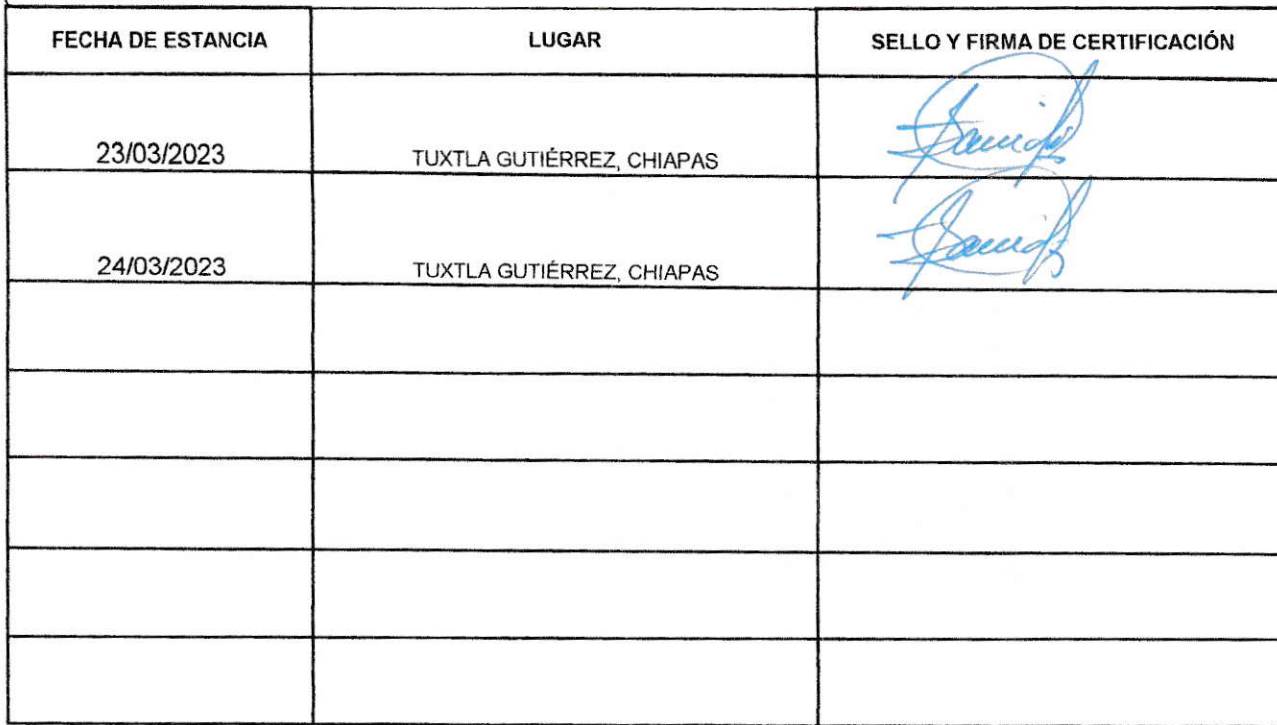 FECHA DE ESTANCIA LUGAR SELLO Y FIRMA DE CERTIFICACIÓN
23/03/2023 TUXTLA GUTIÉRREZ, CHIAPAS
24/03/2023 TUXTLA GUTIÉRREZ, CHIAPAS